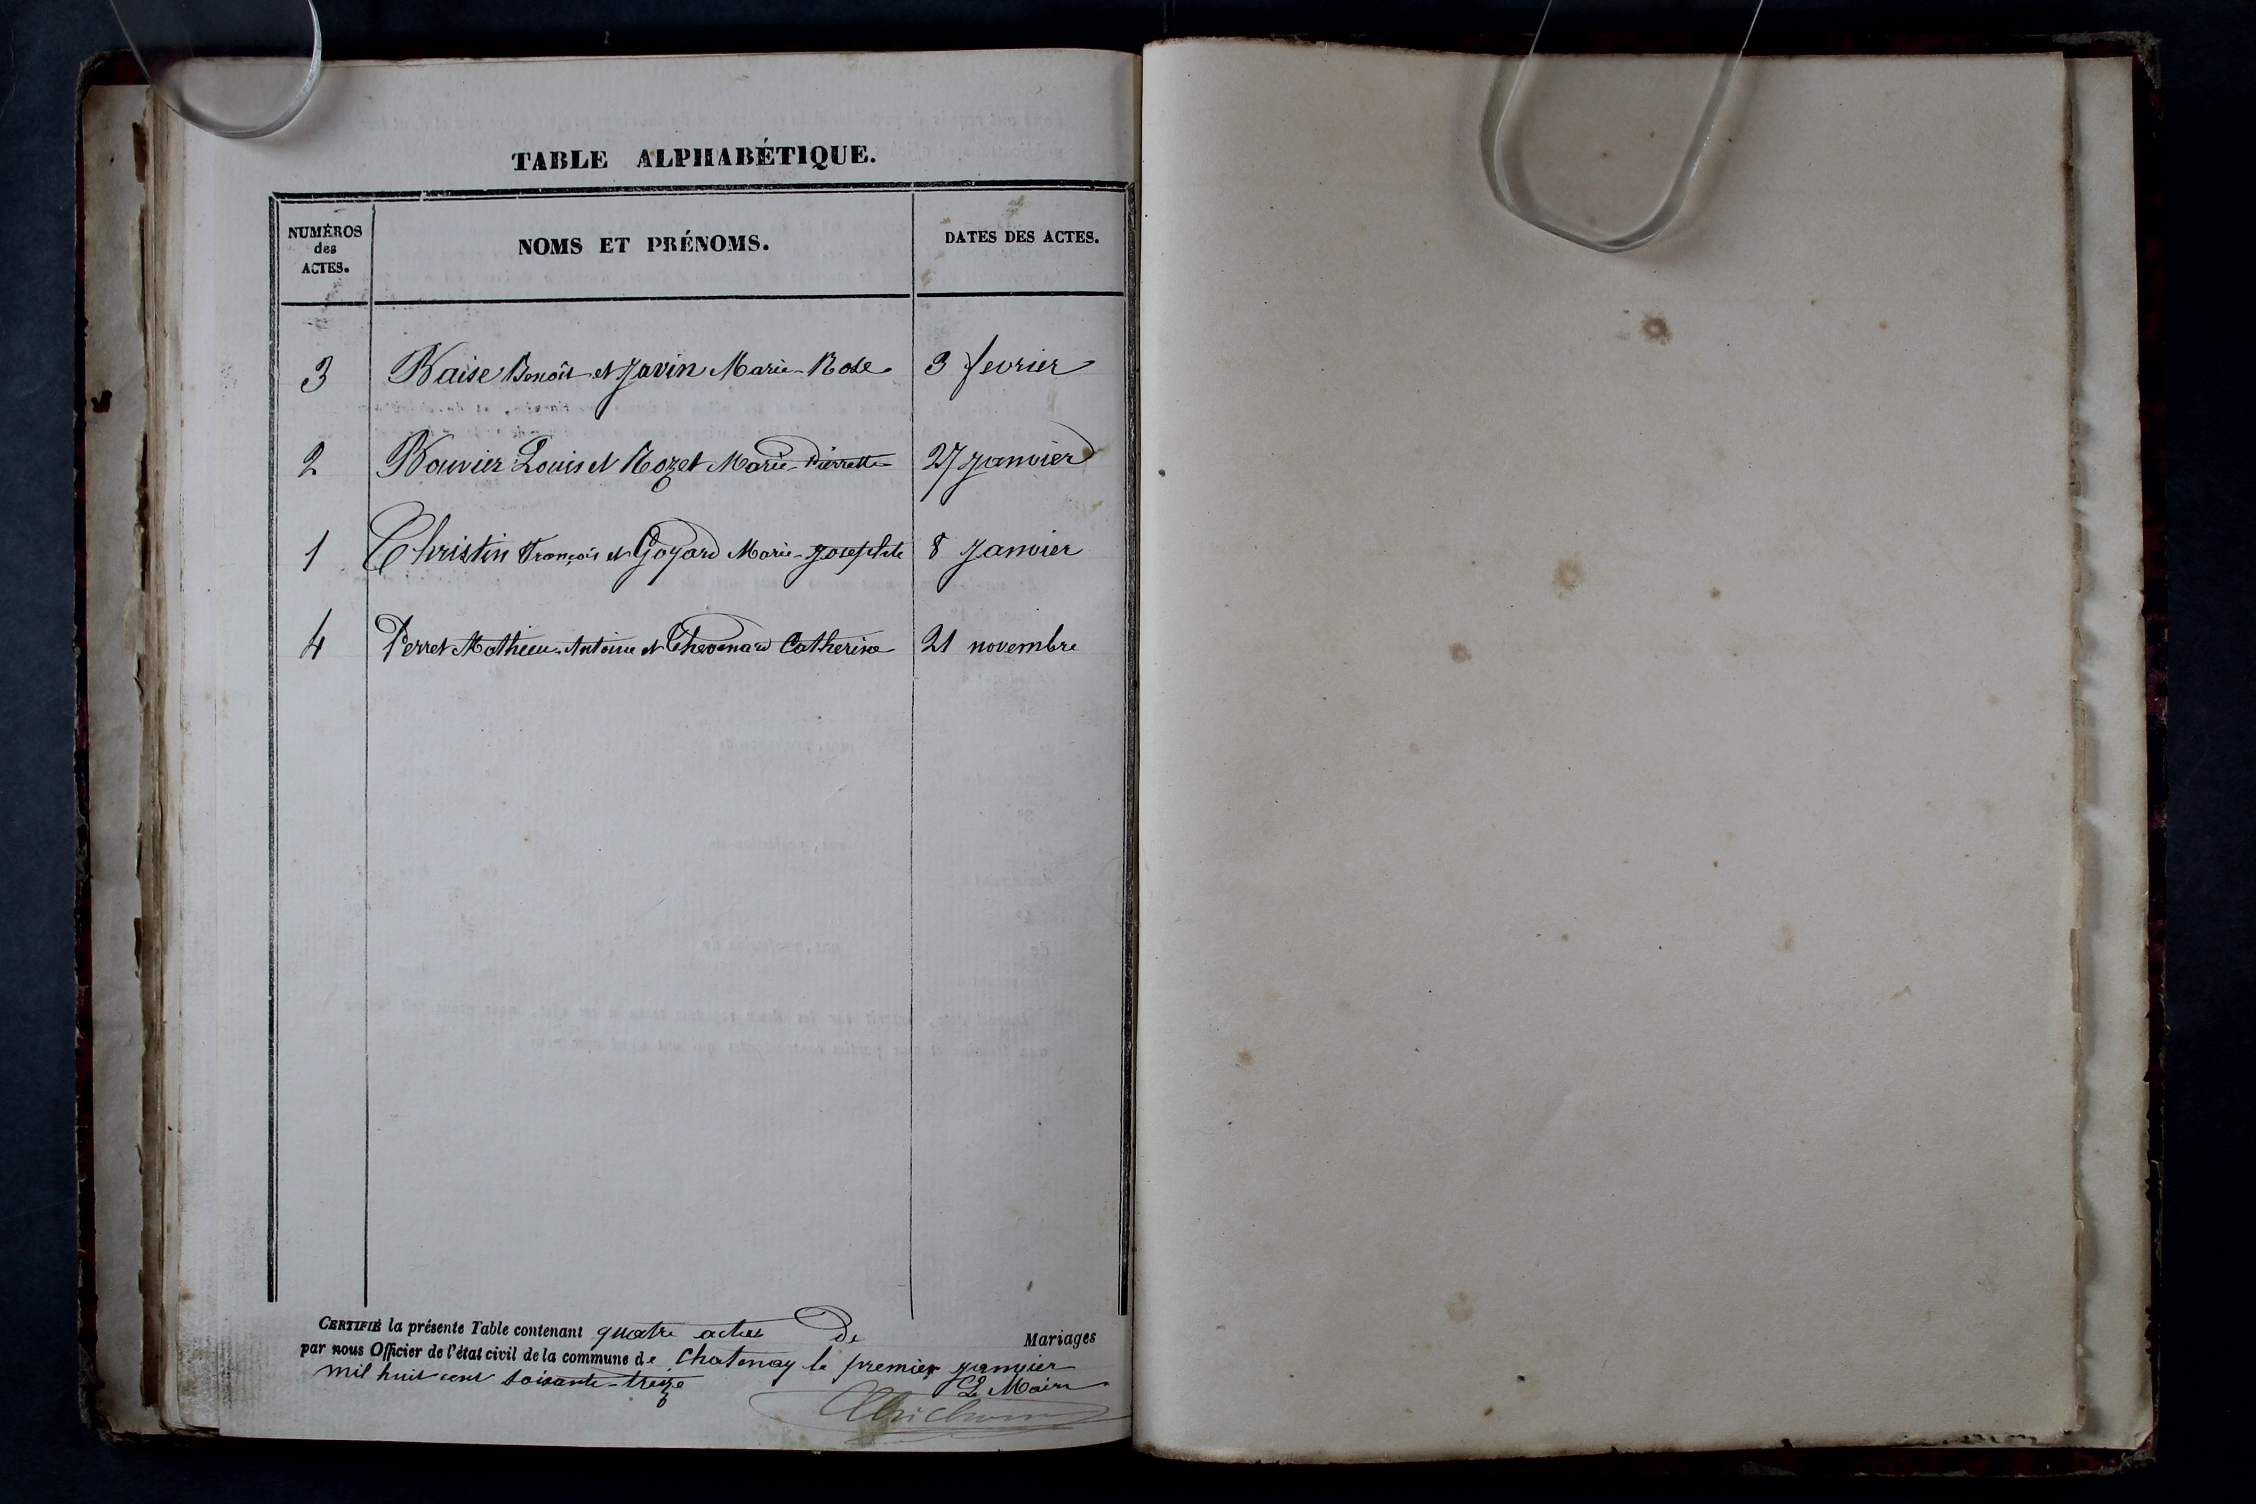 TABLE ALPHABÉTIQUE.
NUMÉROS des ACTES.
NOMS ET PRÉNOMS.
DATES DES ACTES.
3 Blaise Benoît et Javin Marie-Rose 3 fevrier
2 Bouvier Louis et Rozet Marie-Pierrette 27 janvier
1 Christin François et Goyard Marie-Josephte 8 Janvier
4 Perret Mathieu-Antoine et Thevenard Catherine 21 novembre
CERTIFIÉ la présente Table contenant quatre actes de Mariages
par nous Officier de l'état civil de la commune de Chatenay le premier janvier
mil huit cent soixante-treize
Le Maire